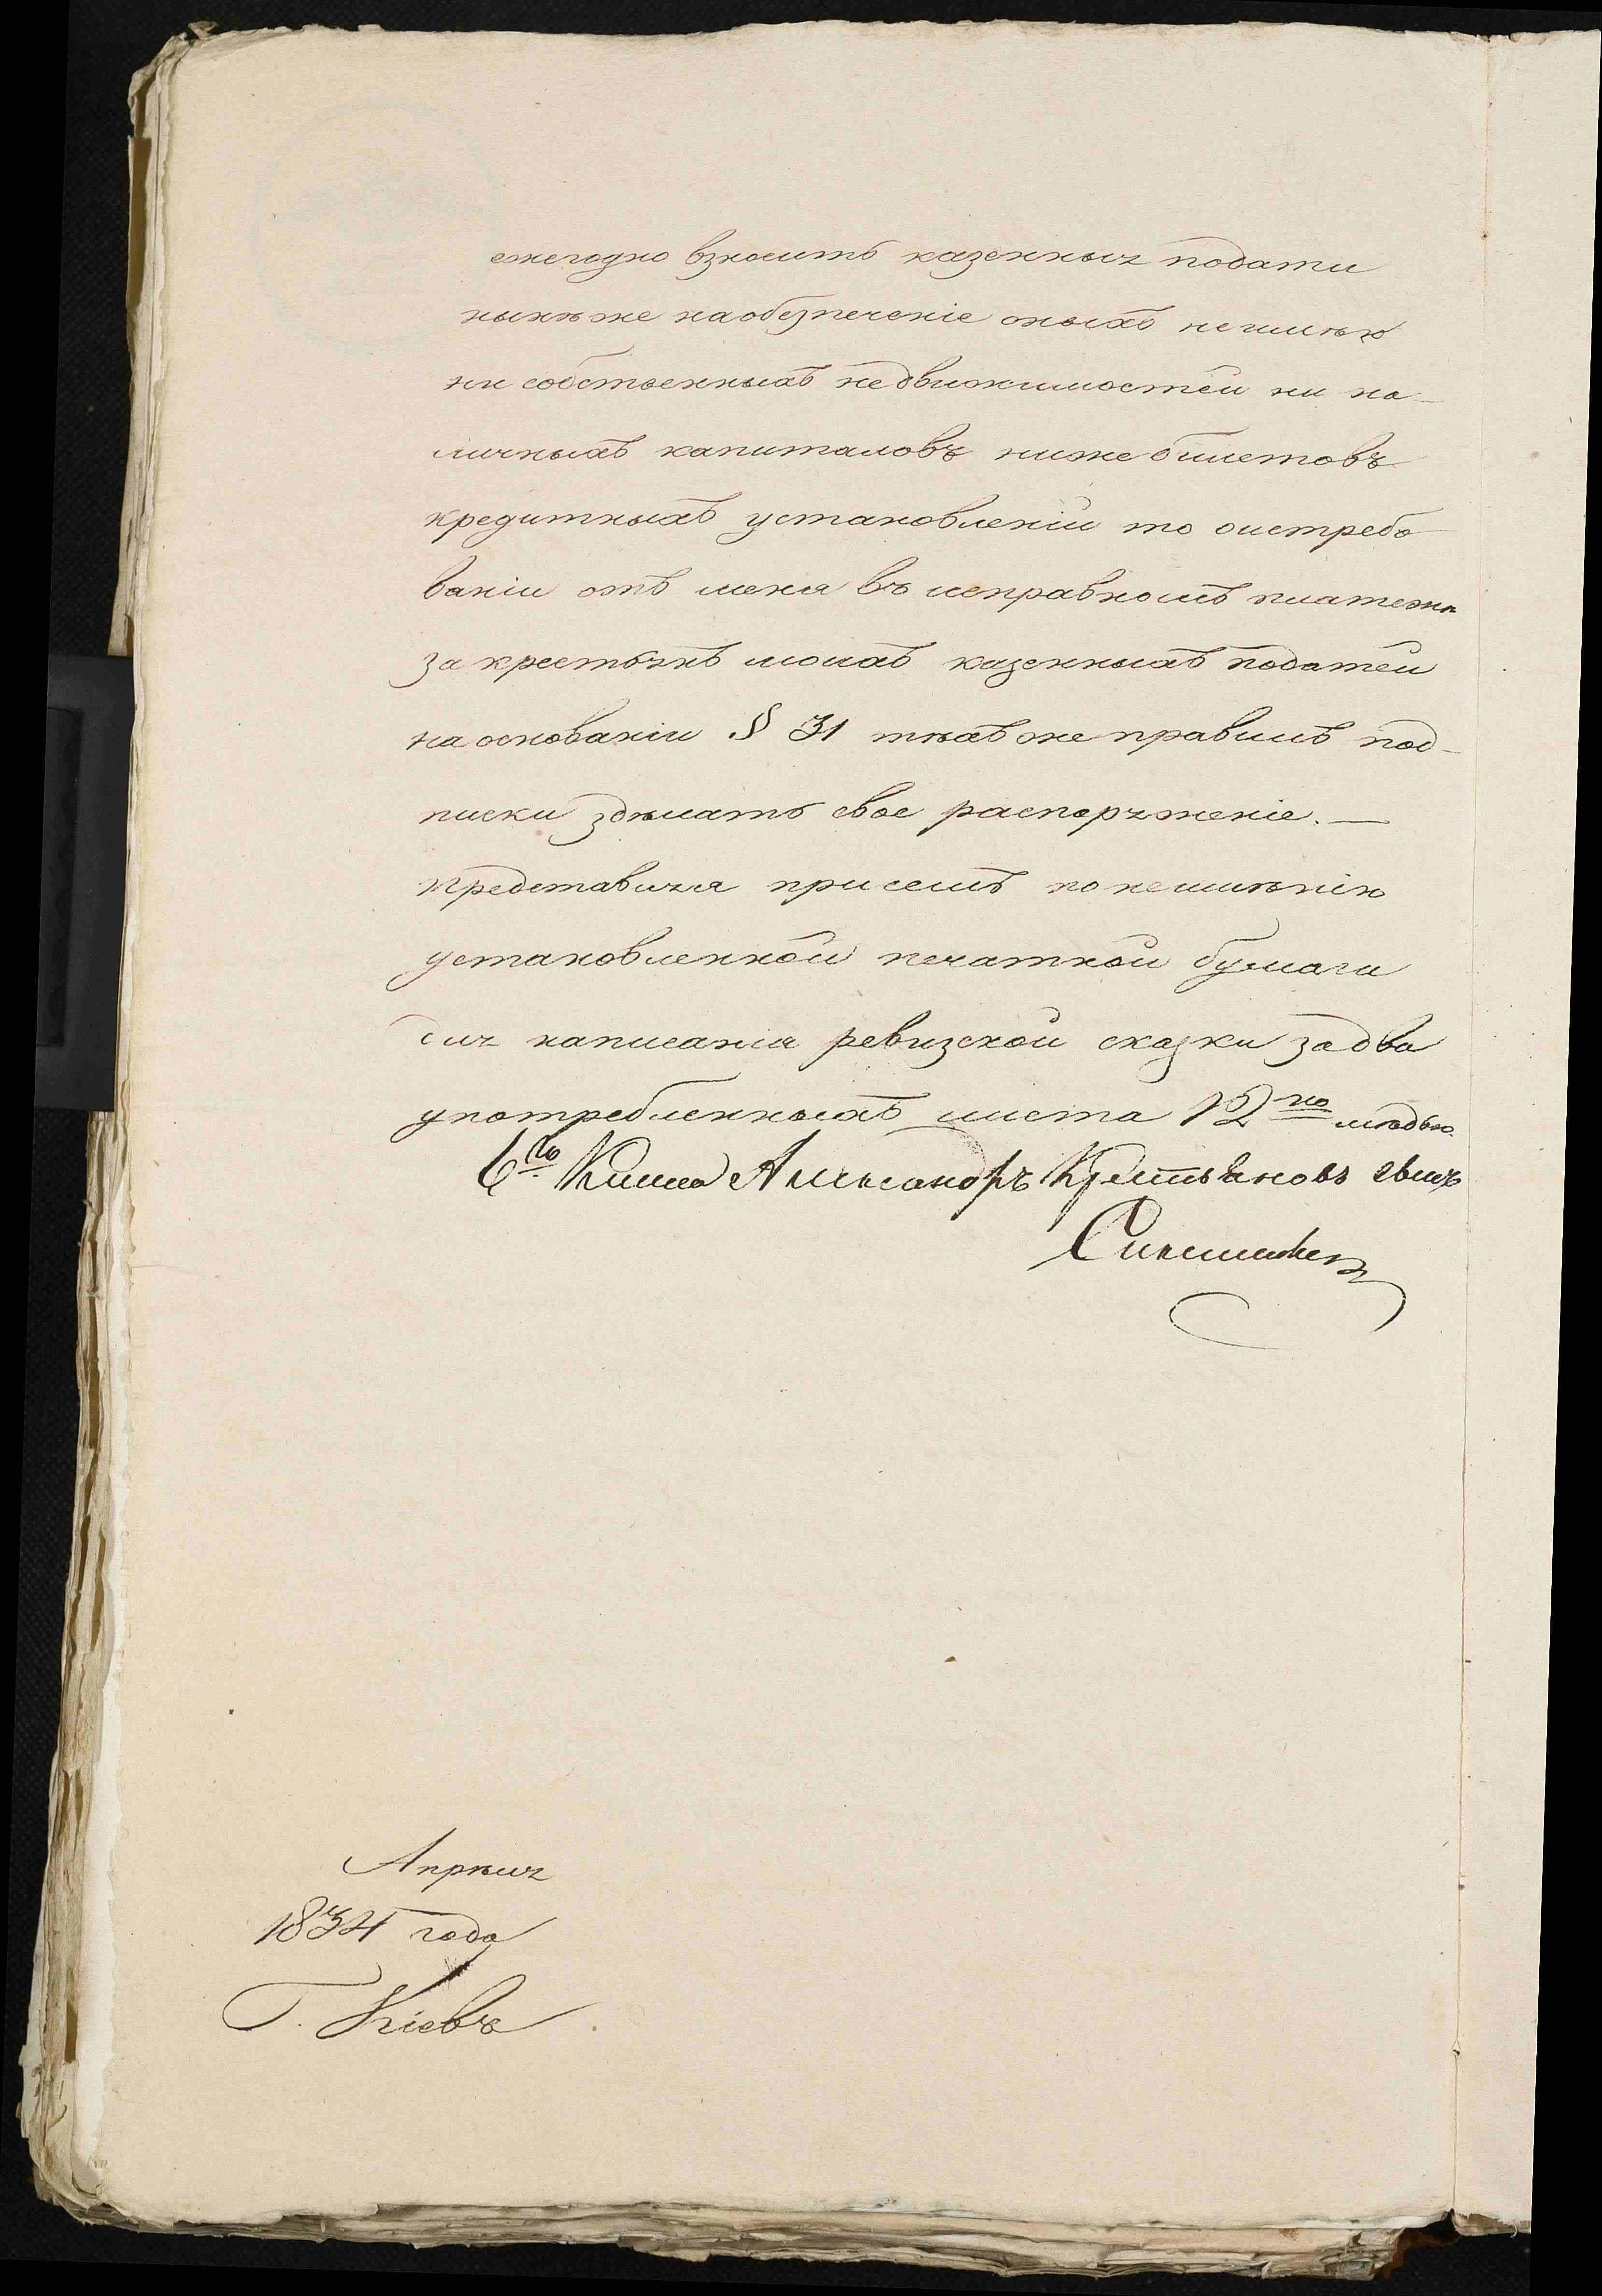 ежегодно взносить казенныя подати
нынѣ же на обезпеченіе оныхъ не имѣю
ни собственныхъ недвижимостей ни на-
личныхъ капиталовъ ниже билетовъ
кредитныхъ установленій то о истребо
ваніи отъ меня въ исправномъ платежѣ
за крестьянъ моихъ казенныхъ податей
на основаніи § 31 тѣхъ же правилъ под-
писки здѣлать свое распоряженіе. —
представляя при семъ по неимѣнію
установленной печатной бумаги
для написанія ревизской сказки за два
употребленныхъ листа 12 ко мѣдью.
6го Класса Александръ
Апрѣля
1834 года
Г. Кіевъ